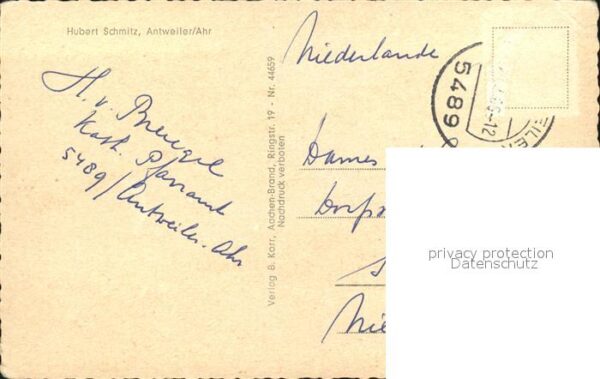 Hubert Schmitz, Antweiler/Ahr
H. v. Breugel
Kath. Pfarramt
5489/Antweiler-Ahr
Verlag B. Karr, Aachen-Brand, Ringstr. 19 - Nr. 44659
Nachdruck verboten
Niederlande
5489
-12
EILER
Dames
Dorps
privacy protection
Datenschutz